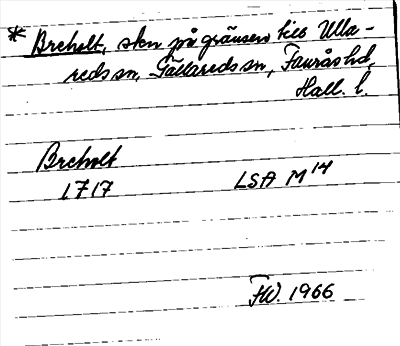 * Breholt, skn på gränsen till Ulla-
reds sn, Gällareds sn, Faurås hd,
Hall. l.
Breholt
1717 LSA M14
FW. 1966